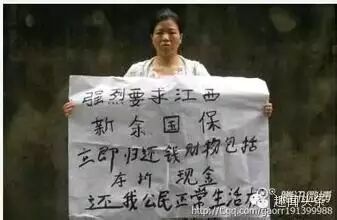 强烈要求江西
新余国保
立即归还钱财物包括
存折 现金
还我公民正常生活
腾讯微博
http://t.qq.com/gaorr191399988